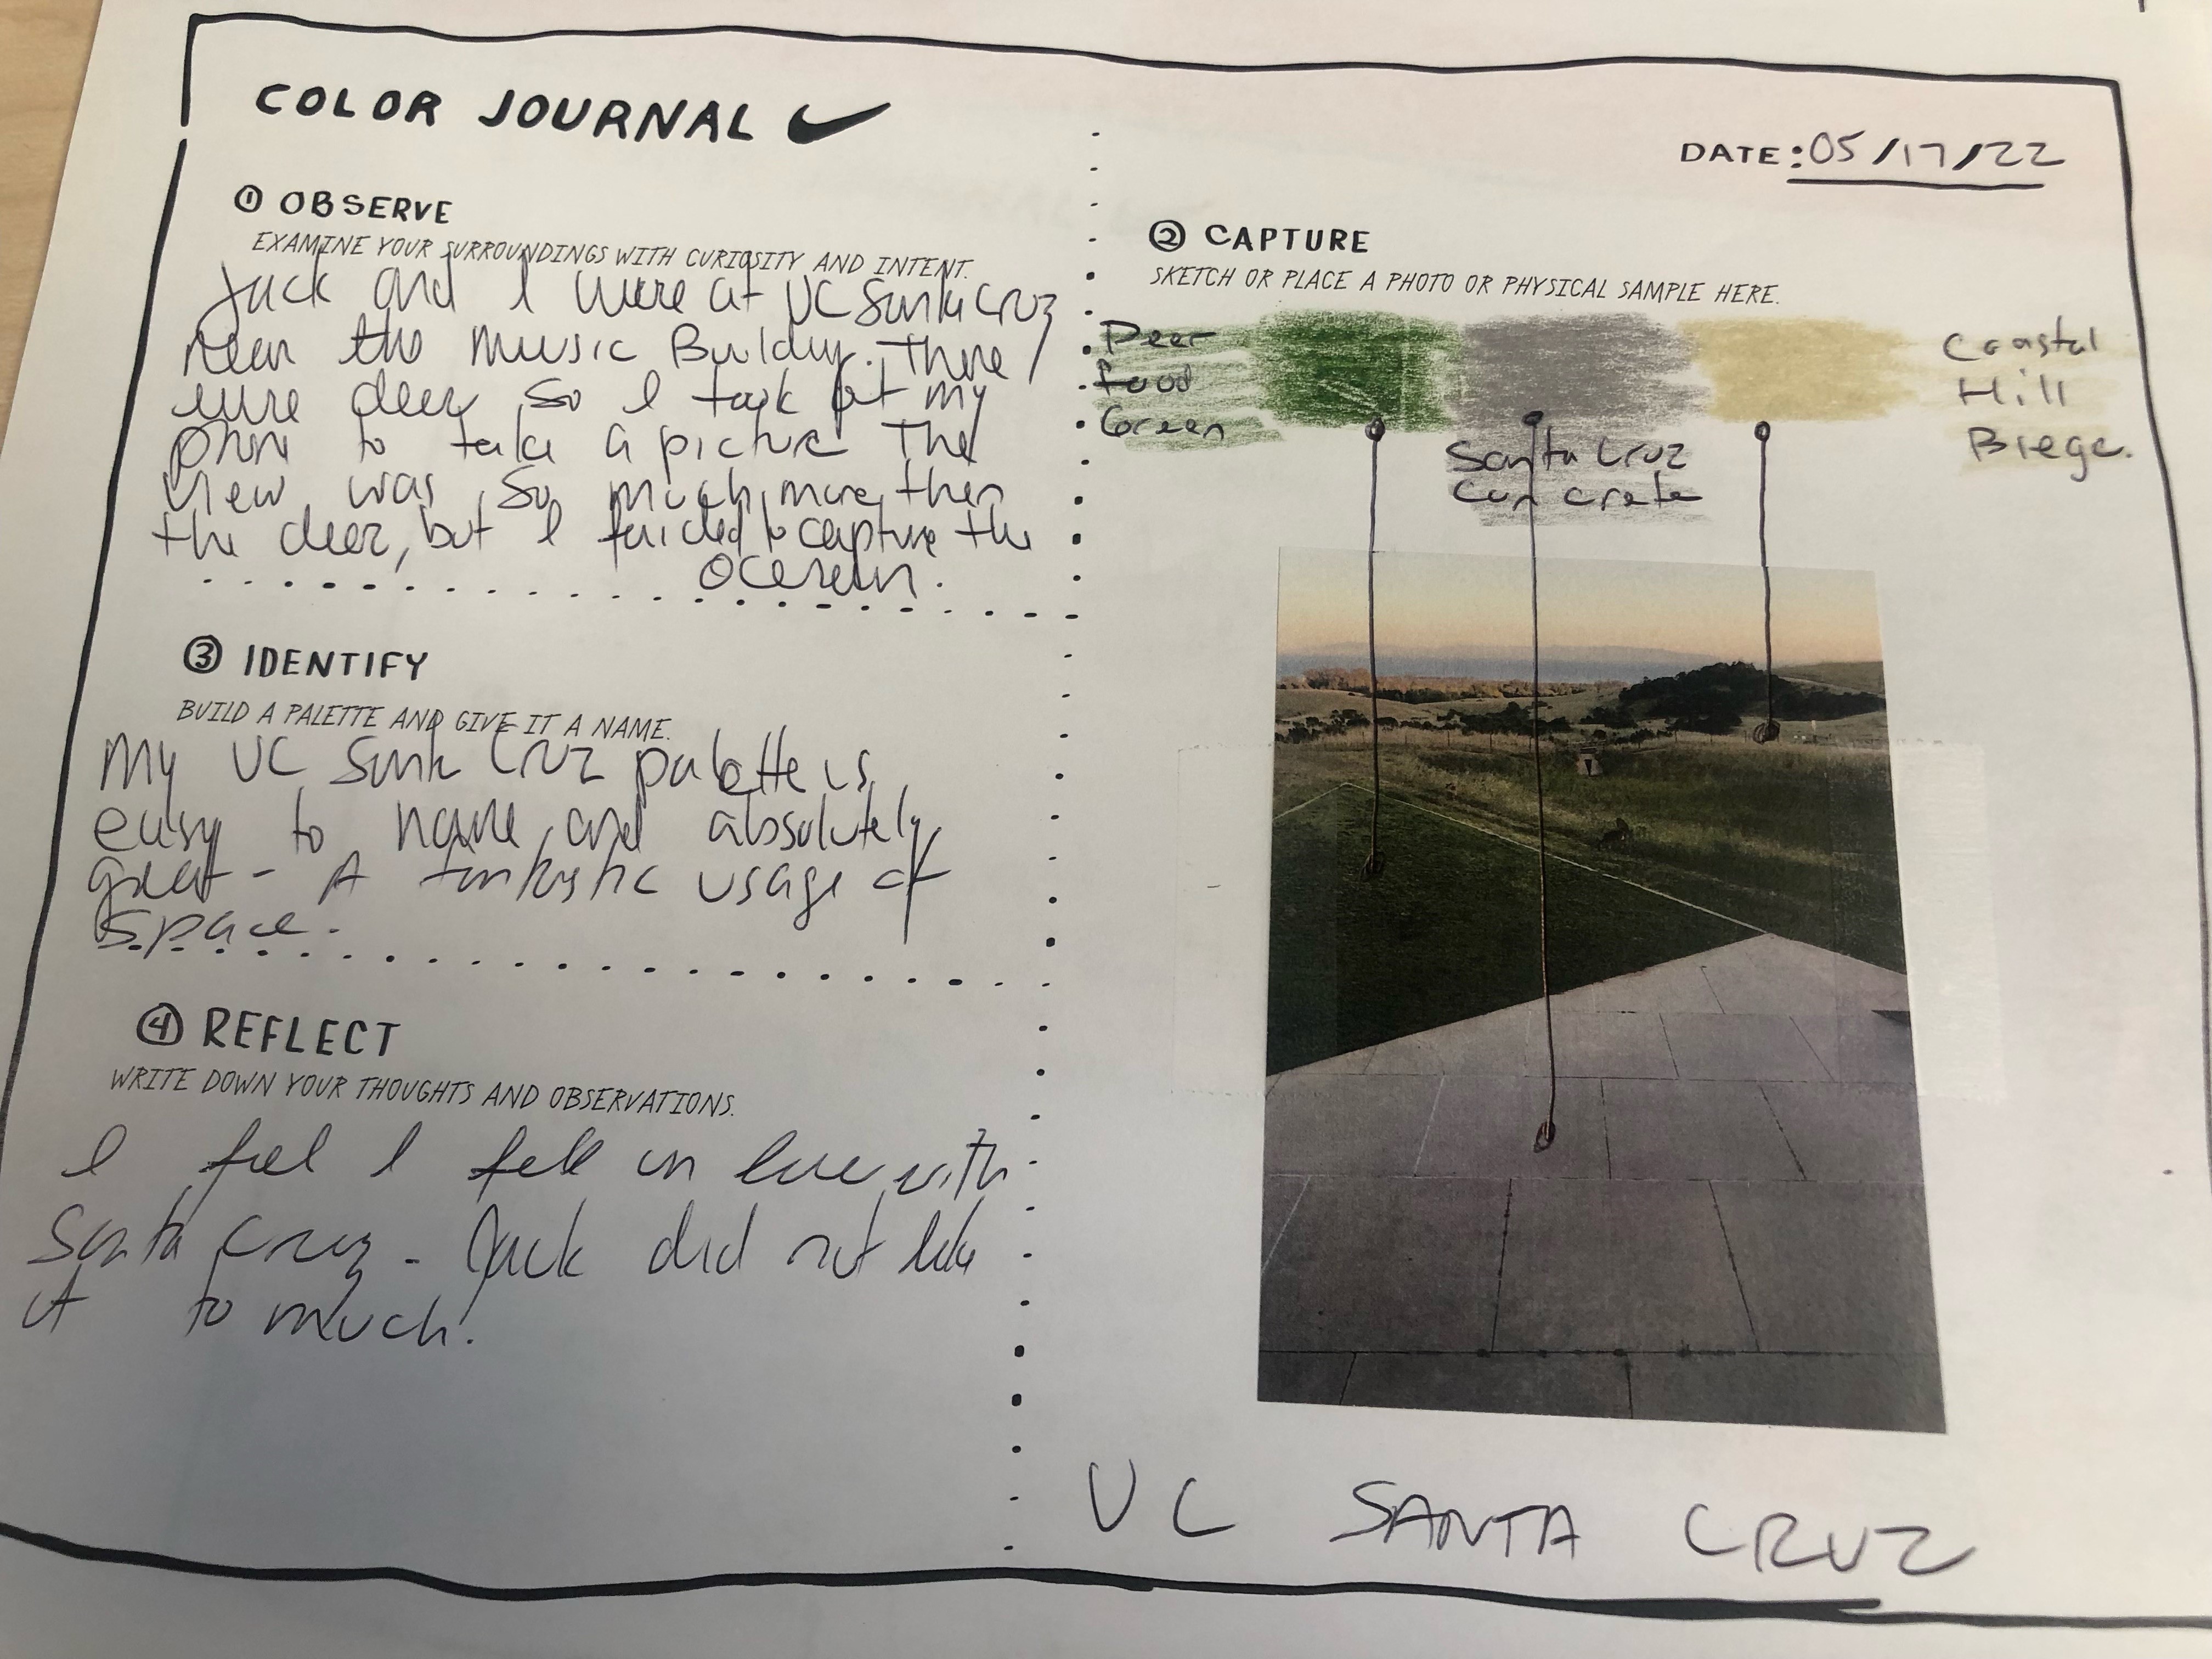 COLOR JOURNAL
DATE: 05/17/22
① OBSERVE
EXAMINE YOUR SURROUNDINGS WITH CURIOSITY AND INTENT.
Jack and I were at UC Santa Cruz
near the Music Building. There
were deer so I took out my
phone to take a picture The
view was so much more then
the deer, but I failed to capture the
② CAPTURE
SKETCH OR PLACE A PHOTO OR PHYSICAL SAMPLE HERE.
Deer
food
Green
Santa Cruz
Concrete
Coastal
Hill
Biege.
③ IDENTIFY
BUILD A PALETTE AND GIVE IT A NAME.
My UC Santa Cruz palette is
easy to name and absolutely
great - A fantastic usage of
space.
④ REFLECT
WRITE DOWN YOUR THOUGHTS AND OBSERVATIONS.
I feel I fell in love with
Santa Cruz - Jack did not like
it to much!
UC SANTA CRUZ